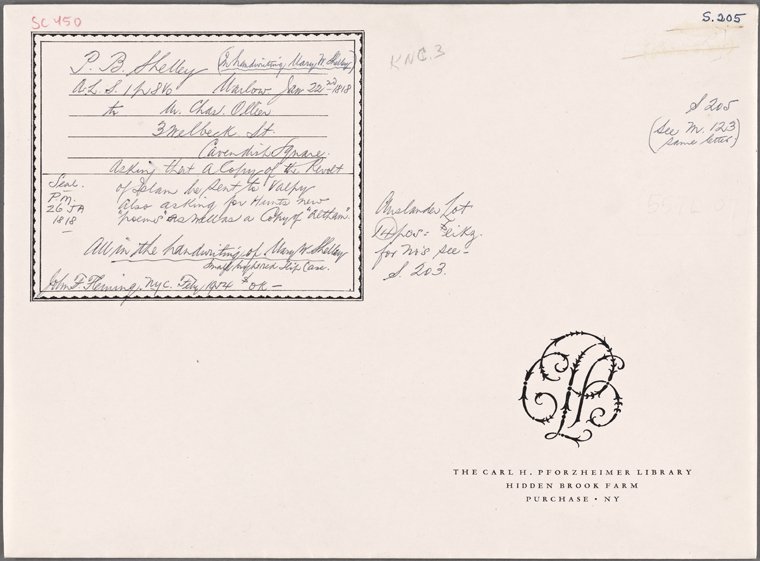 SC 450
S. 205
P. B. Shelley (In handwriting Mary W. Shelley)
A.L.S. 1p 8vo Marlow Jan 22nd 1818
to Mr. Chas. Ollier
3 Welbeck St.
Cavendish Square.
Asking that a Copy of the Revolt
of Islam be sent to Valpy
Also asking for Hunts new
"poems" as well as a Copy of "Altham".
Seal.
P.M.
26 JA
1818
All in the handwriting of Mary W. Shelley
Small Slip Case.
John F. Fleming, N.Y.C. Feby. 1954
KNC.3
S 205
(See M. 123)
same letter
Auslander Lot
14 pcs =
for No's see -
S. 203.
THE CARL H. PFORZHEIMER LIBRARY
HIDDEN BROOK FARM
PURCHASE • NY